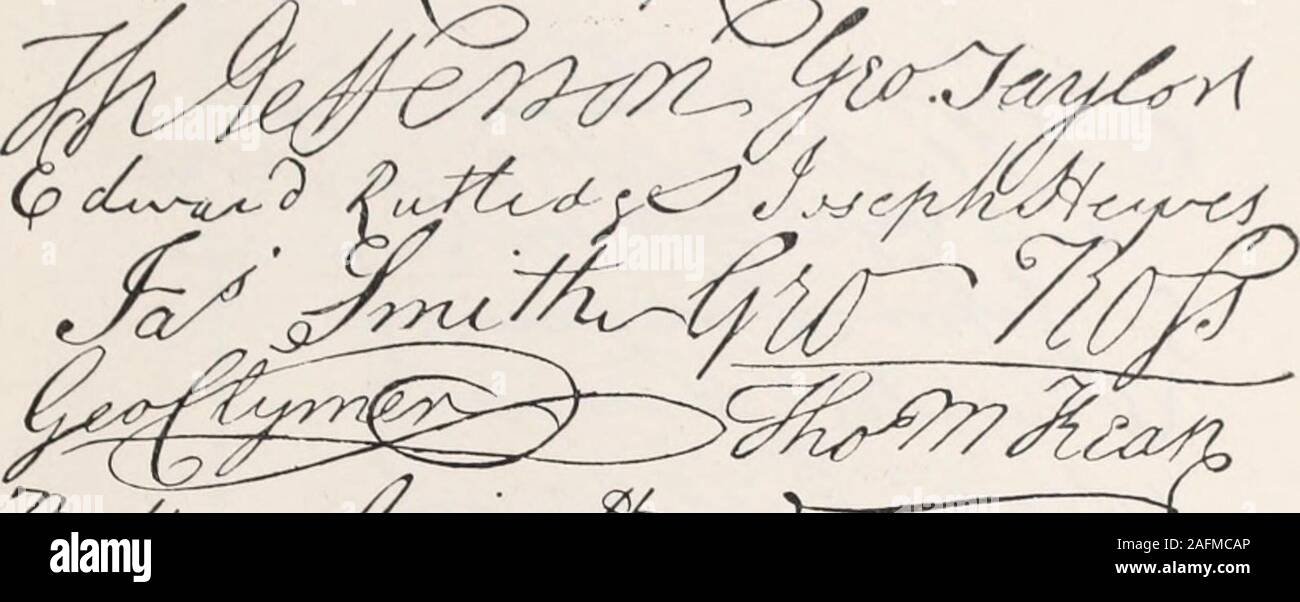 Th Jefferson Geo. Taylor
Edward Rutledge Joseph Hewes
Jas Smith Geo Ross
Geo Clymer Tho M Kean
alamy
Image ID: 2AFMCAP
www.alamy.com